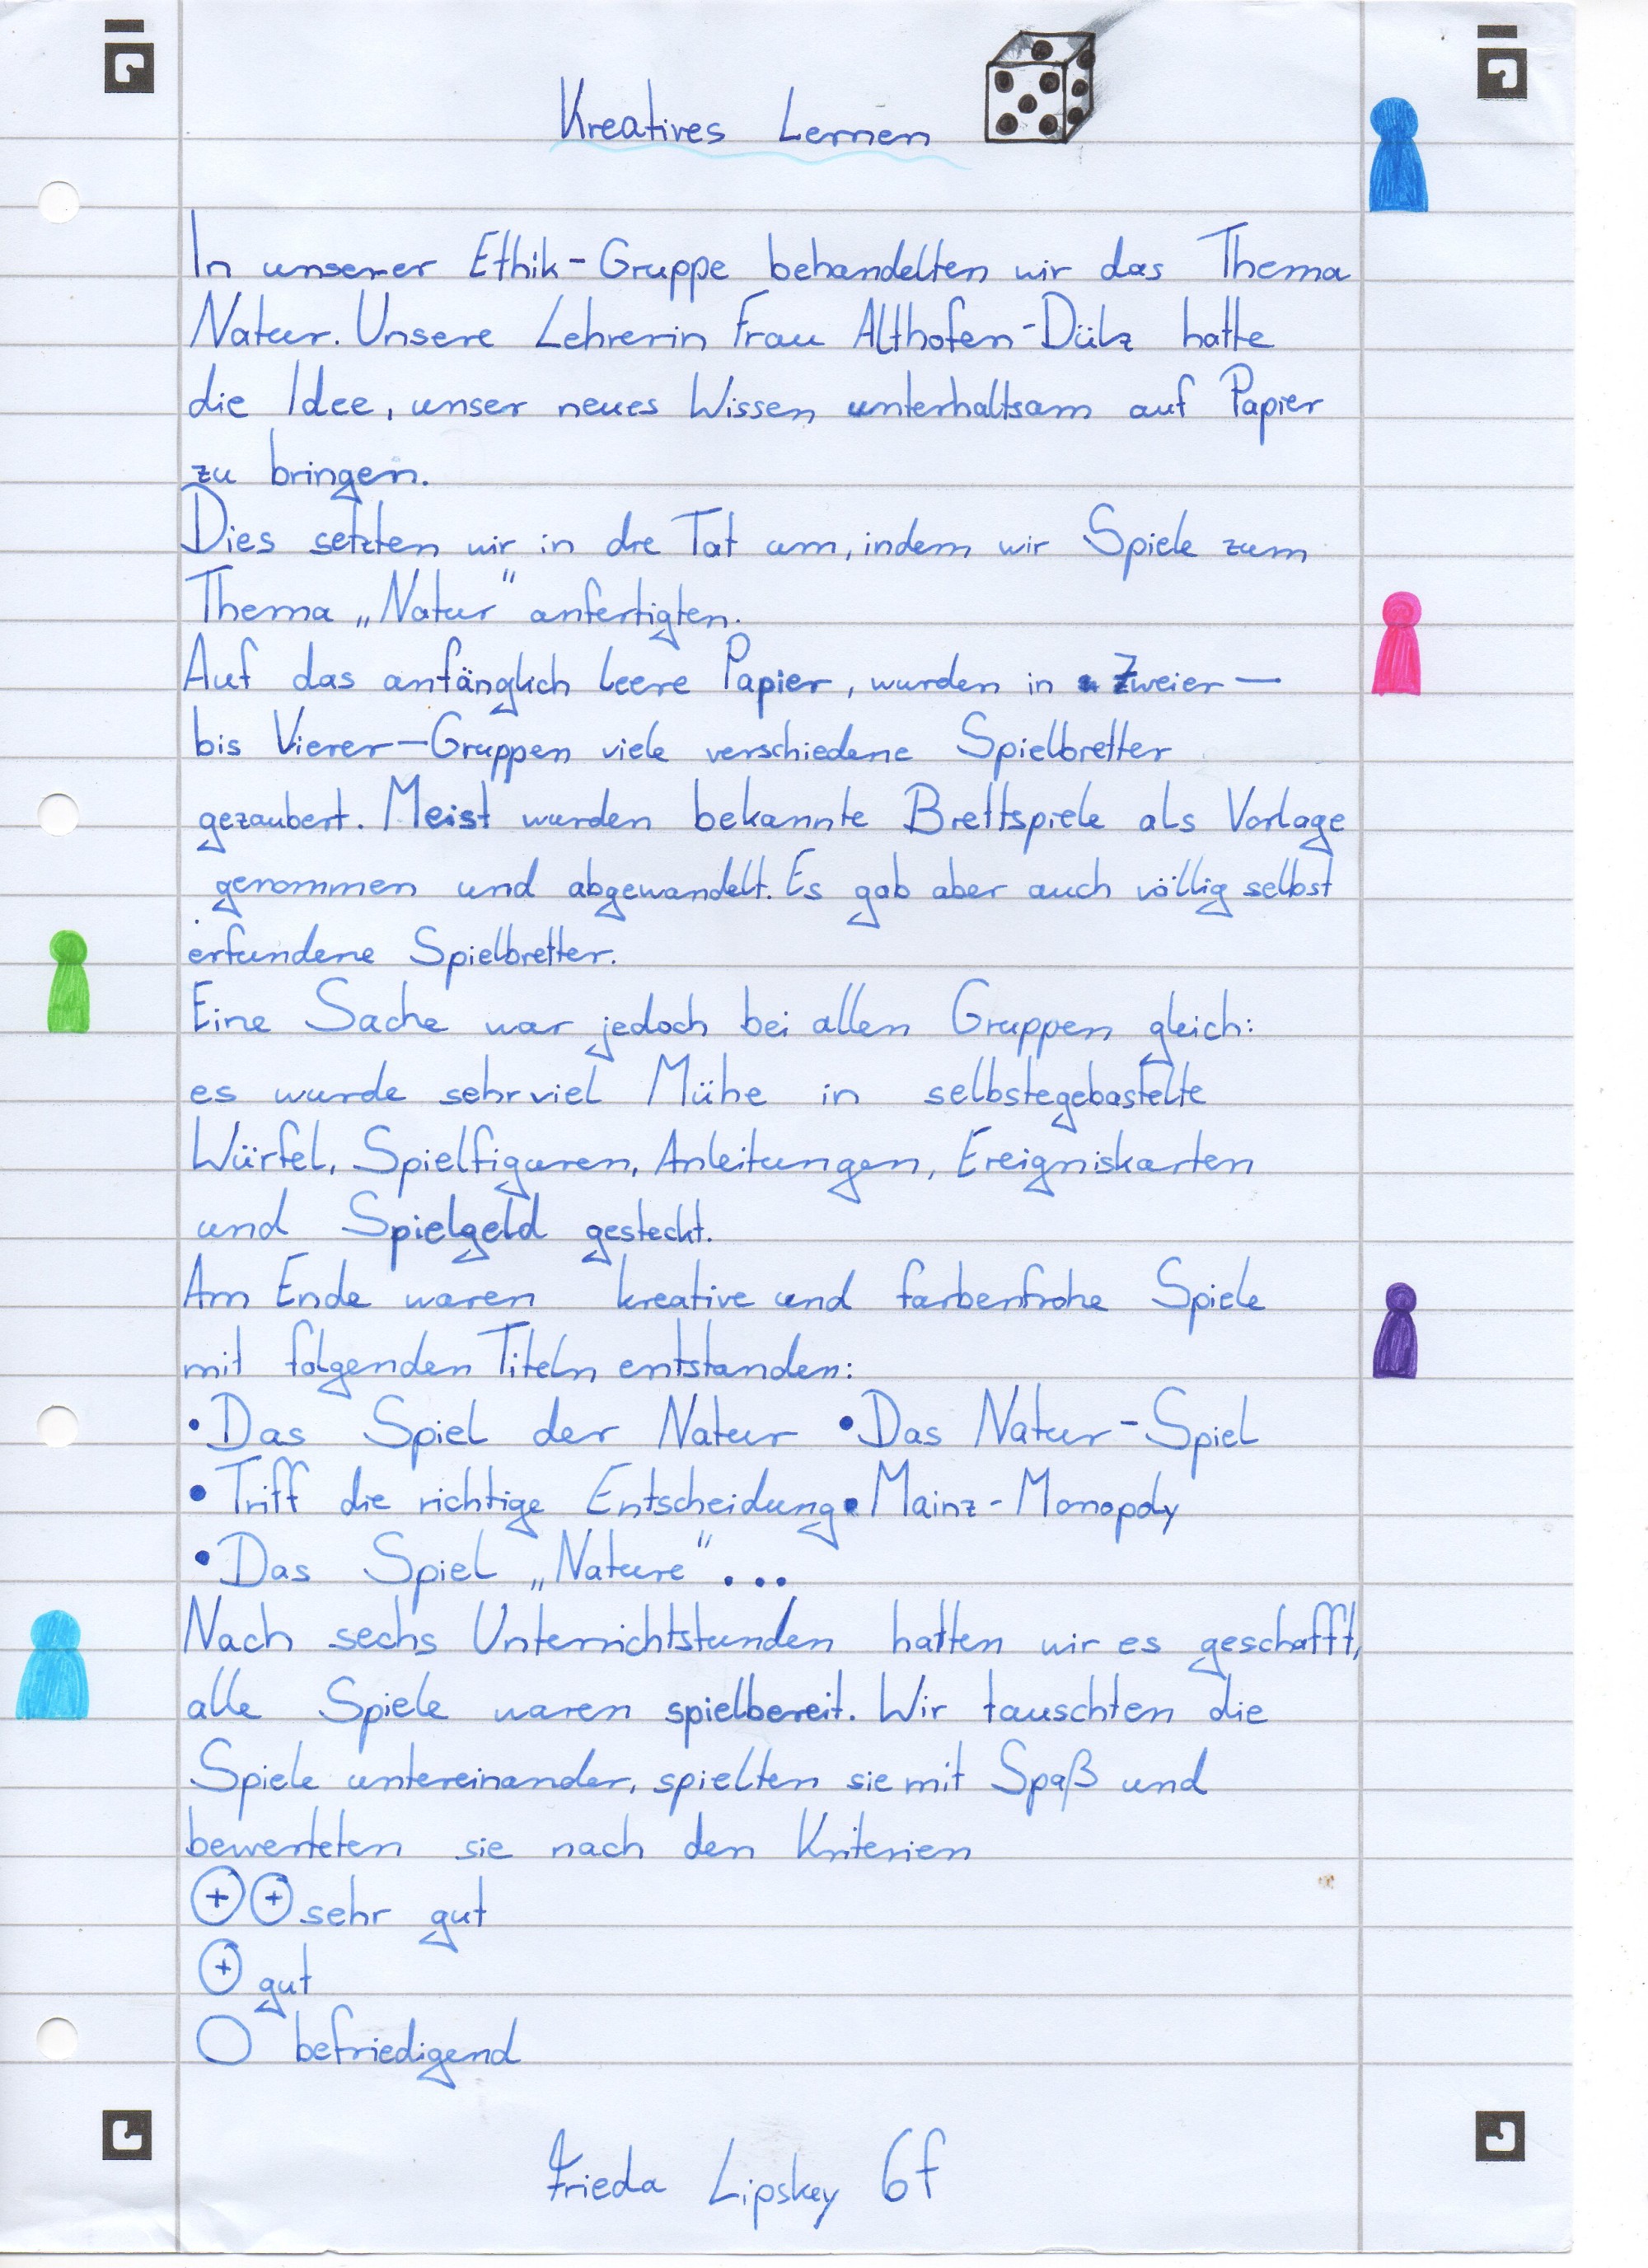 Kreatives Lernen
In unserer Ethik-Gruppe behandelten wir das Thema
Natur. Unsere Lehrerin Frau Althofen-Dülz hatte
die Idee, unser neues Wissen unterhaltsam auf Papier
zu bringen.
Dies setzten wir in die Tat um, indem wir Spiele zum
Thema „Natur“ anfertigten.
Auf das anfänglich leere Papier, wurden in Zweier-
bis Vierer-Gruppen viele verschiedene Spielbretter
gezaubert. Meist wurden bekannte Brettspiele als Vorlage
genommen und abgewandelt. Es gab aber auch völlig selbst
erfundene Spielbretter.
Eine Sache war jedoch bei allen Gruppen gleich:
es wurde sehr viel Mühe in selbstegebastelte
Würfel, Spielfiguren, Anleitungen, Ereigniskarten
und Spielgeld gesteckt.
Am Ende waren kreative und farbenfrohe Spiele
mit folgenden Titeln entstanden:
• Das Spiel der Natur • Das Natur-Spiel
• Triff die richtige Entscheidung • Mainz-Monopoly
• Das Spiel „Nature“ ...
Nach sechs Unterrichtstunden hatten wir es geschafft,
alle Spiele waren spielbereit. Wir tauschten die
Spiele untereinander, spielten sie mit Spaß und
bewerteten sie nach den Kriterien
⊕⊕ sehr gut
⊕ gut
○ befriedigend
Frieda Lipskey 6f